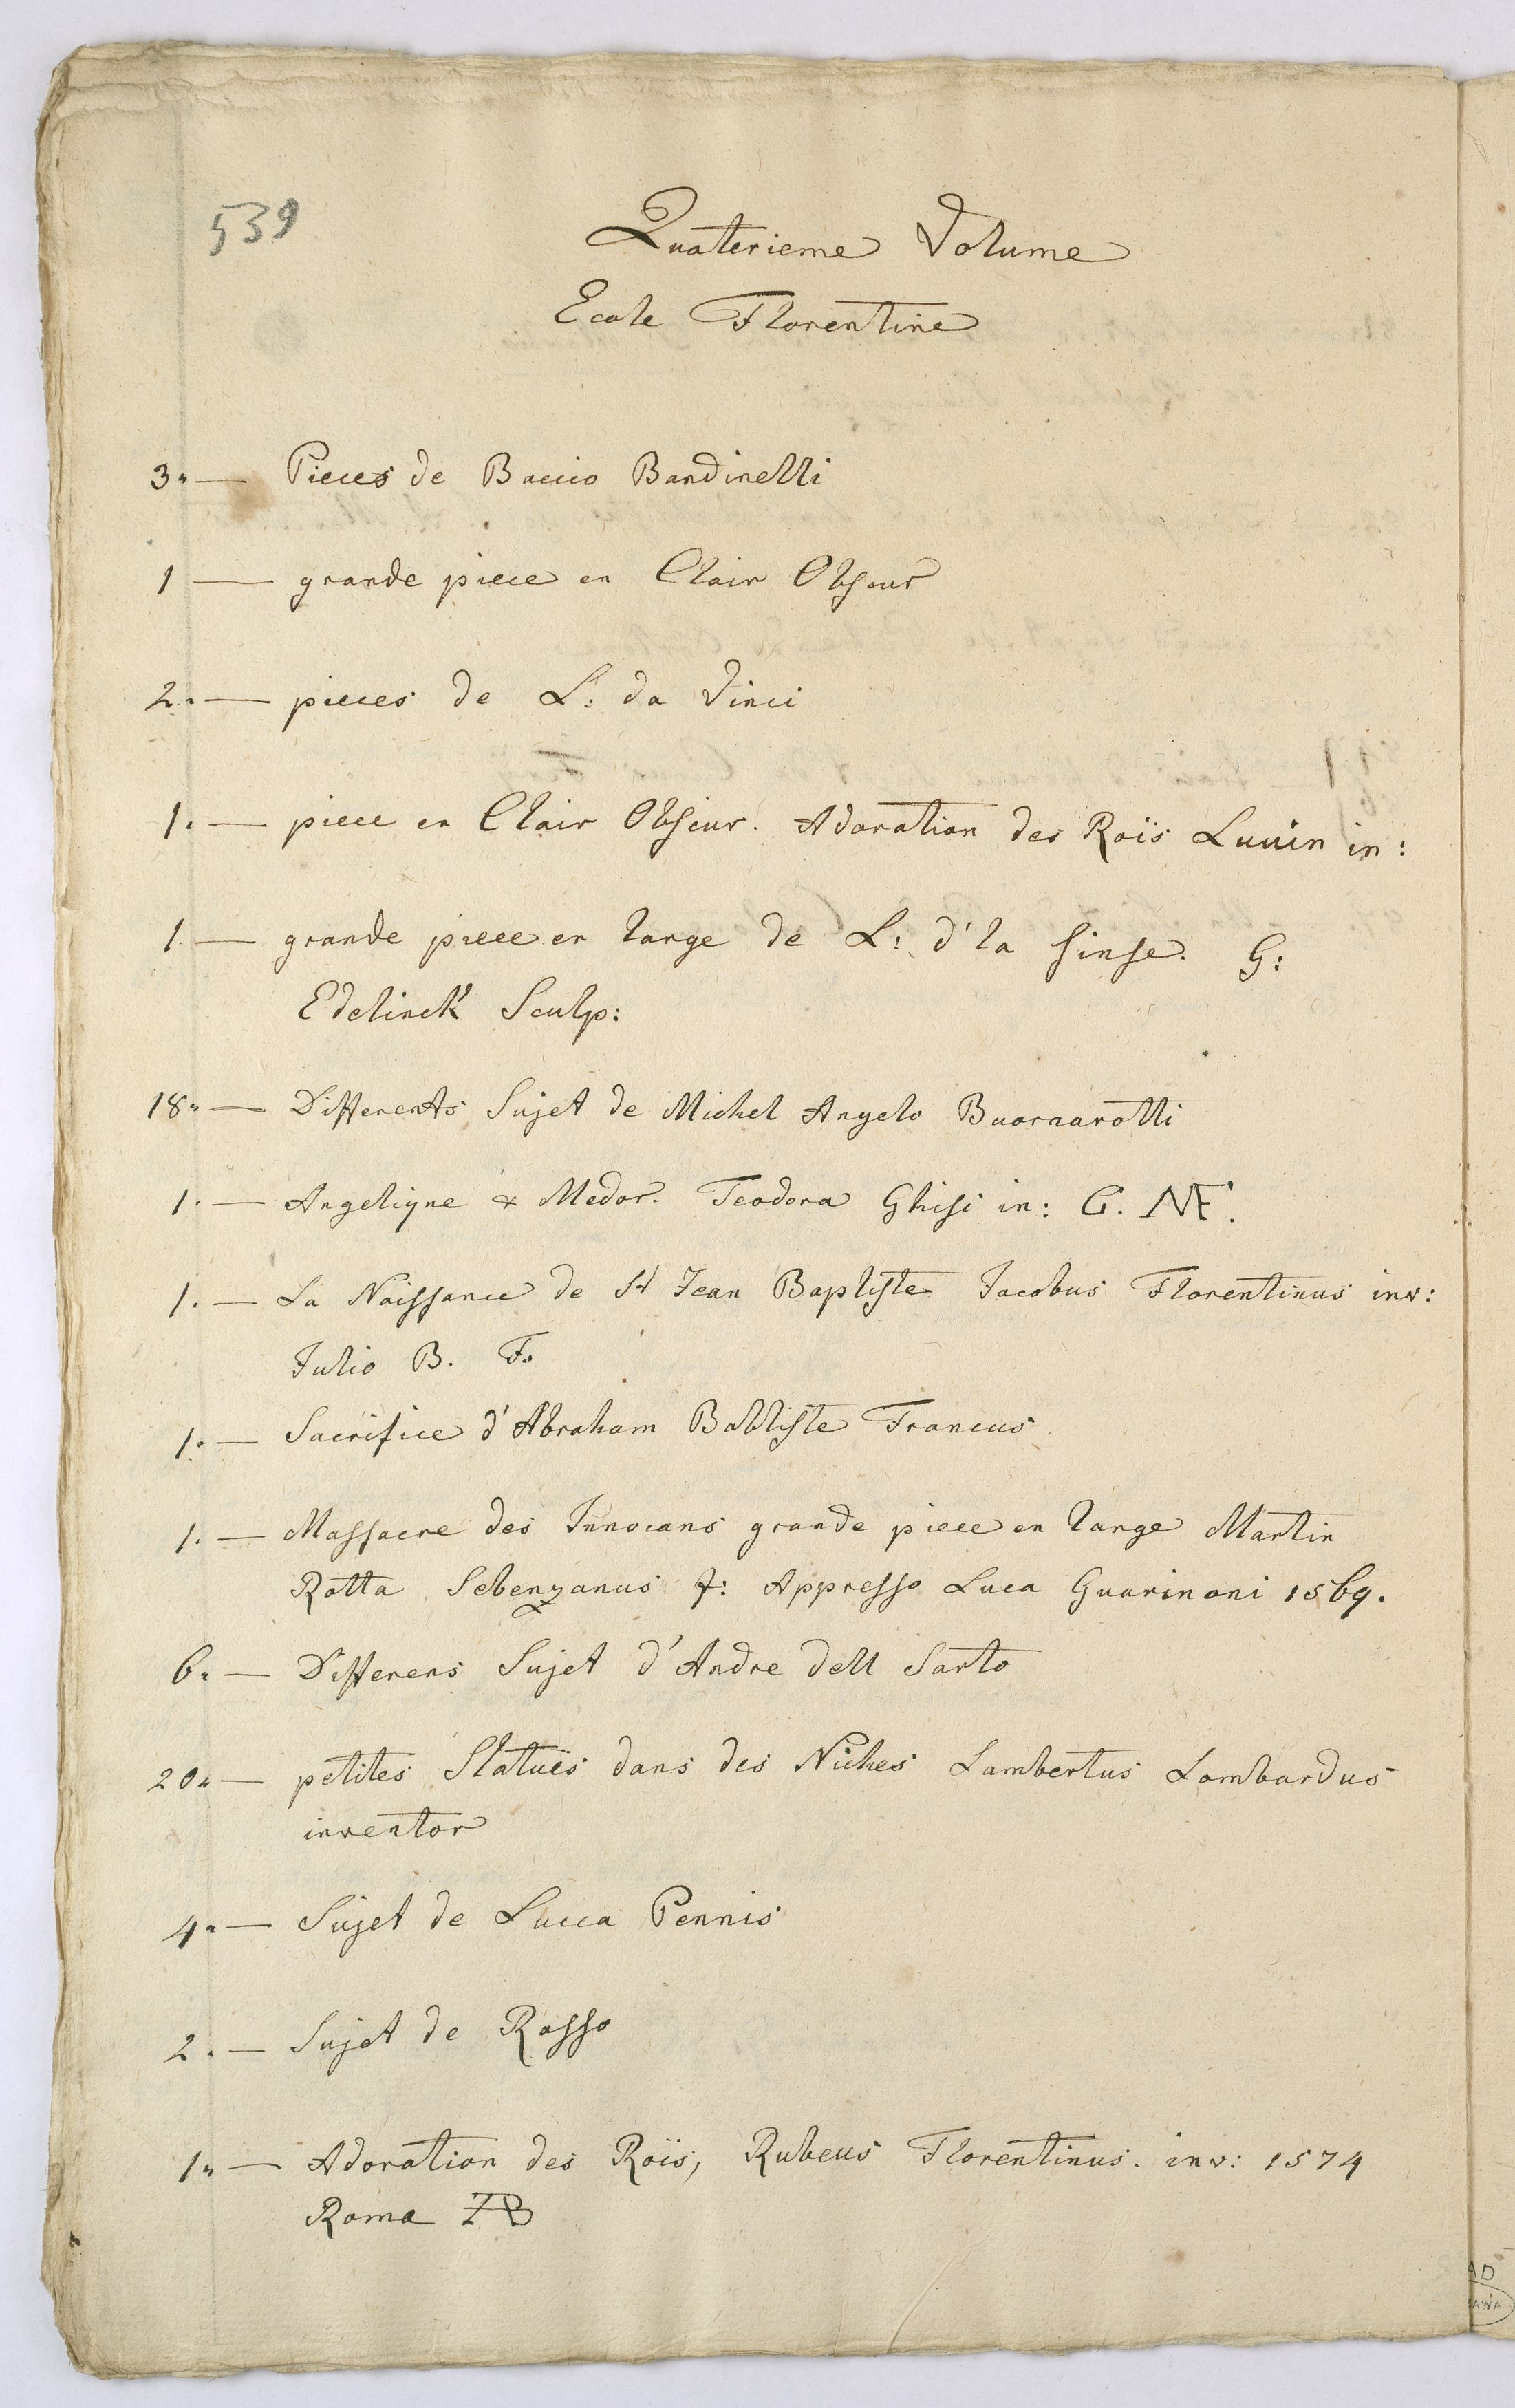 539
Quaterieme Volume
Ecole Florentine
3„ — Pieces de Bacio Bandinelli
1 — grande piece en Clair Obscur
2. — pieces de L: da Vinci
1. — piece en Clair Obscur. Adoration des Roïs Luuin in:
1. — grande piece en large de L: d'la finse. G:
Edelinck Sculp:
18„ — Differents Sujet de Michel Angelo Buornarotti
1. — Angeligne & Medor. Teodora Ghisi in: G. NF.
1. — La Naissance de St Jean Baptiste Jacobus Florentinus inv:
Julio B. F.
1. — Sacrifice d'Abraham Babtiste Francus.
1. — Massacre des Innocans grande piece en large Martin
Rotta Sebenzanus f: Appresso Luca Guarinoni 1569.
6„ — Differens Sujet d'Andre dell Sarto
20„ — petites Statuës dans des Niches Lambertus Lombardus
inventor
4„ — Sujet de Lucca Pennis
2. — Sujet de Rosso
1„ — Adoration des Roïs, Rubeus Florentinus. inv: 1574
Roma
AD
AWA